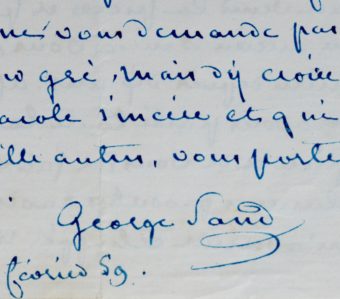 me vous demande pas
gré, mais d'y croire
parole sincère et qui
mille autres, vous porte
George Sand
février 59.